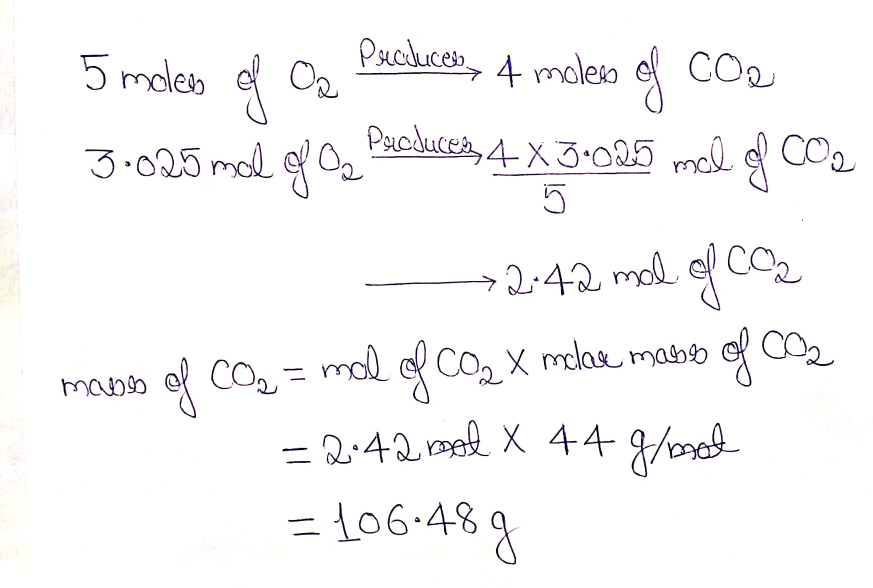 5 moles of O₂ Produces→ 4 moles of CO₂
3.025 mol of O₂ Produces→ 4 X 3.025 / 5 mol of CO₂
→ 2.42 mol of CO₂
mass of CO₂ = mol of CO₂ X molar mass of CO₂
= 2.42 mol X 44 g/mol
= 106.48 g